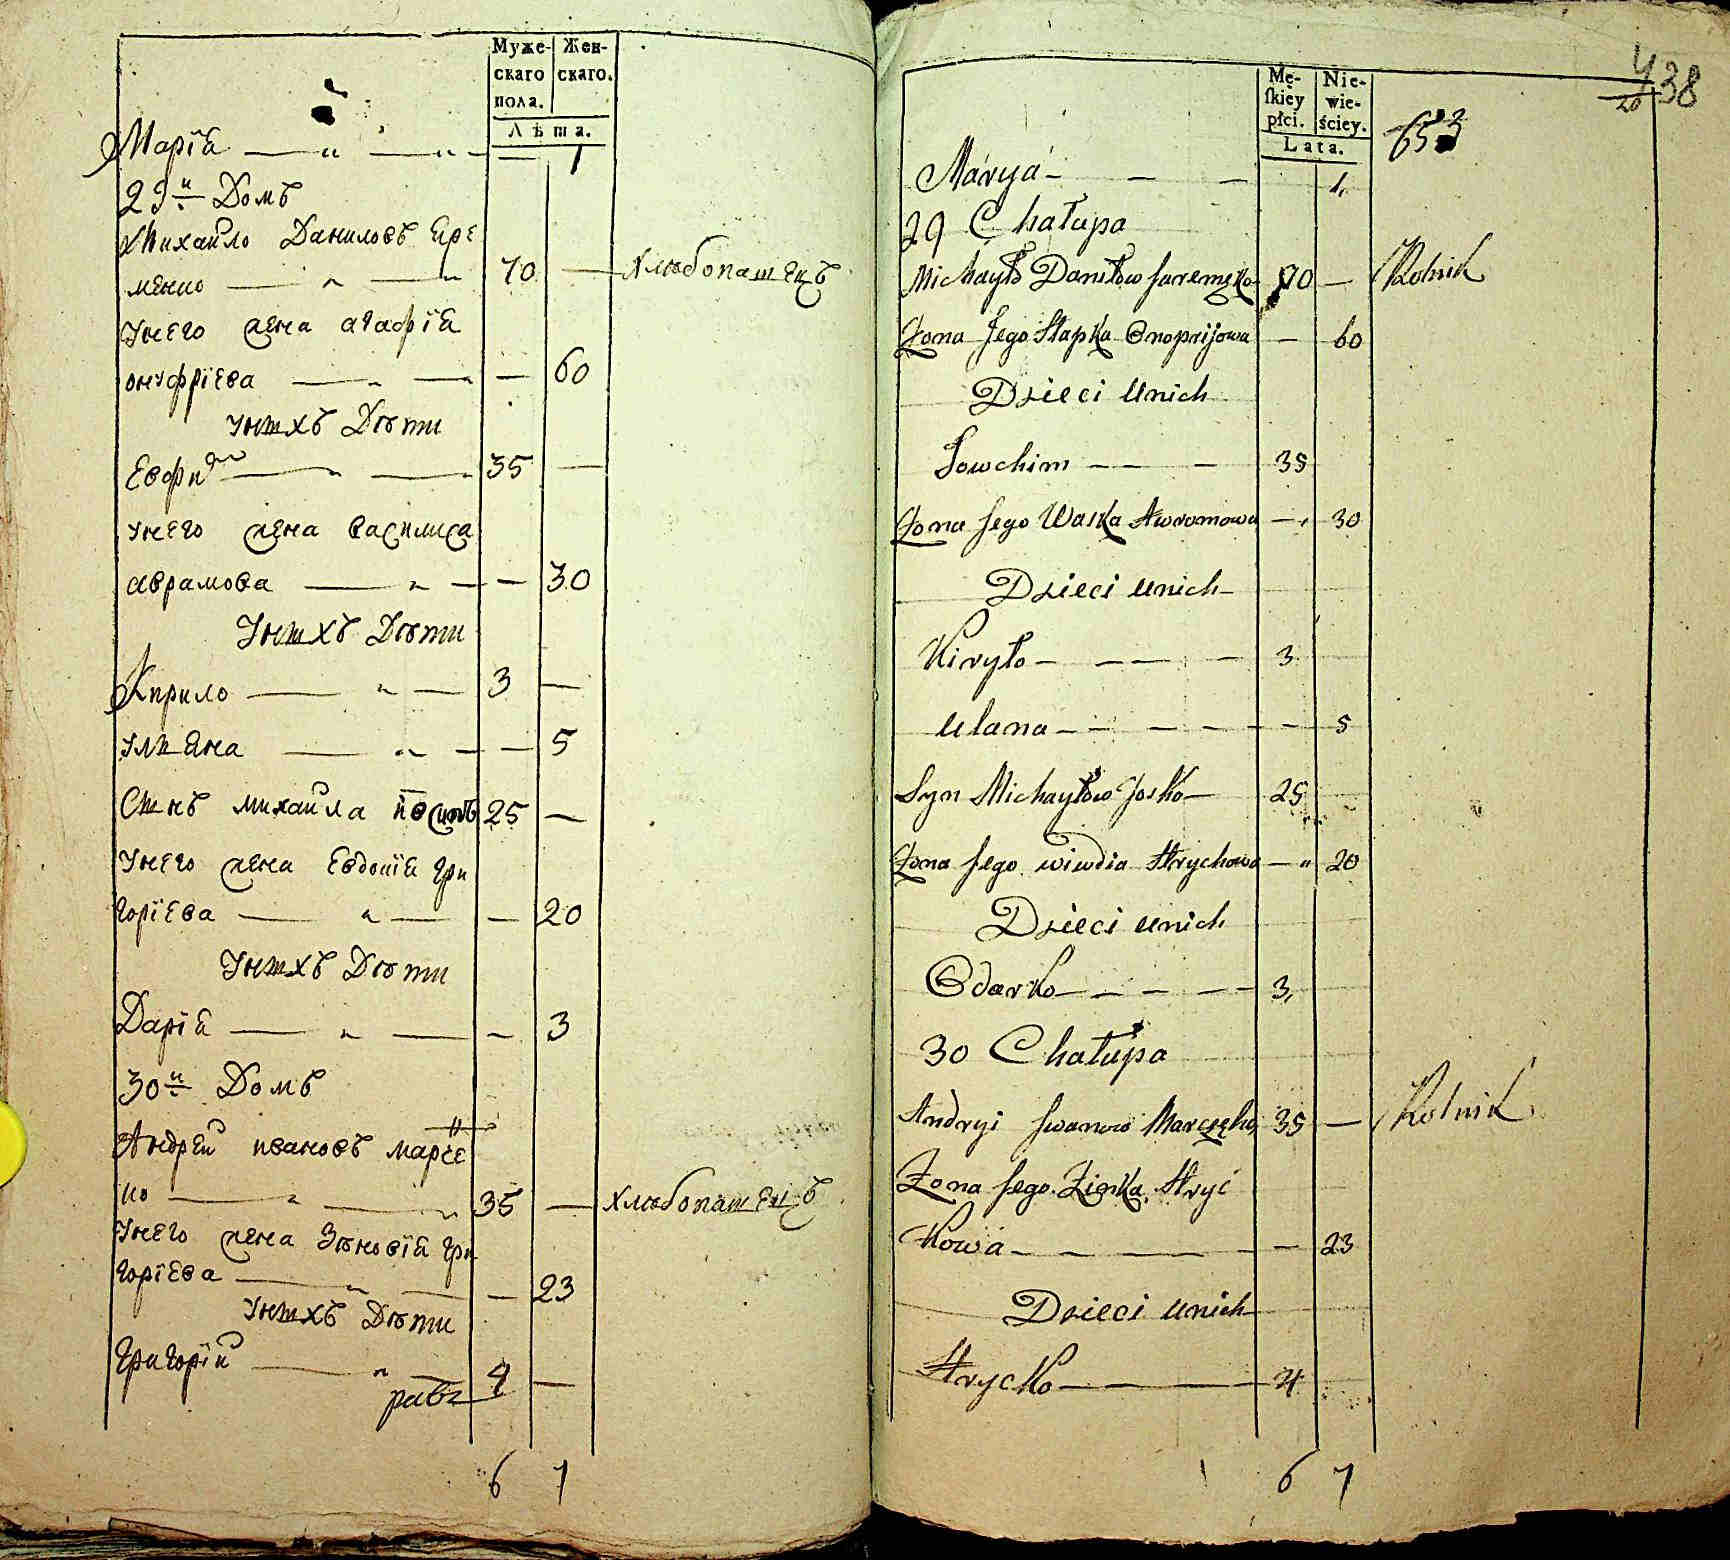 Муже-
скаго
пола.
Жен-
скаго.
Лѣта.
Марїя — „ — „ — — 1
29й Домъ
Михайло Даниловъ Яре
менко — „ — „ 70 — Хлѣбопашецъ
Унего жена Агафїя
онуфрїева — „ — — 60
Унихъ Дѣти
Евфим — „ — 35 —
Унего жена Василиса
аврамова — „ — — 30
Унихъ Дѣти
Кирило — „ — 3 —
Ульяна — „ — — 5
Сынъ Михайла Іосипъ 25 —
Унего жена Евдокїя Гри
горїева — „ — — 20
Унихъ Дѣти
Дарїя — „ — — 3
30й Домъ
Андрей ивановъ марче
ко — „ — „ 35 — Хлѣбопашецъ
Унего жена Зѣновїя Гри
горїева — „ — — 23
Унихъ Дѣти
Григорїй — „ — 4 —
6 7
438
20
653
Mę-
ſkiey
płci.
Nie-
wie-
ściey.
Lata.
Márya — — — 1,
29 Chałupa
Michayło Daniłow Jaremęko 70 — Rolnik
Żona Jego Hapka Onoprijowa — 60
Dzieci Unich
Jowchim — — — 35
Żona Jego Waska Awramowa — 30
Dzieci unich
Kiryło — — — — 3
Ulana — — — — — — 5
Syn Michayłow Josko — 25
Żona Jego wiwdia Hrychowa — „ 20
Dzieci unich
Odarko — — — — — 3,
30 Chałupa
Andryi Jwanow Marczęko 35 — Rolnik
Żona Jego Zienka Hryć
Kowa — — — — — 23
Dzieci unich
Hrycko — — 4
6 7